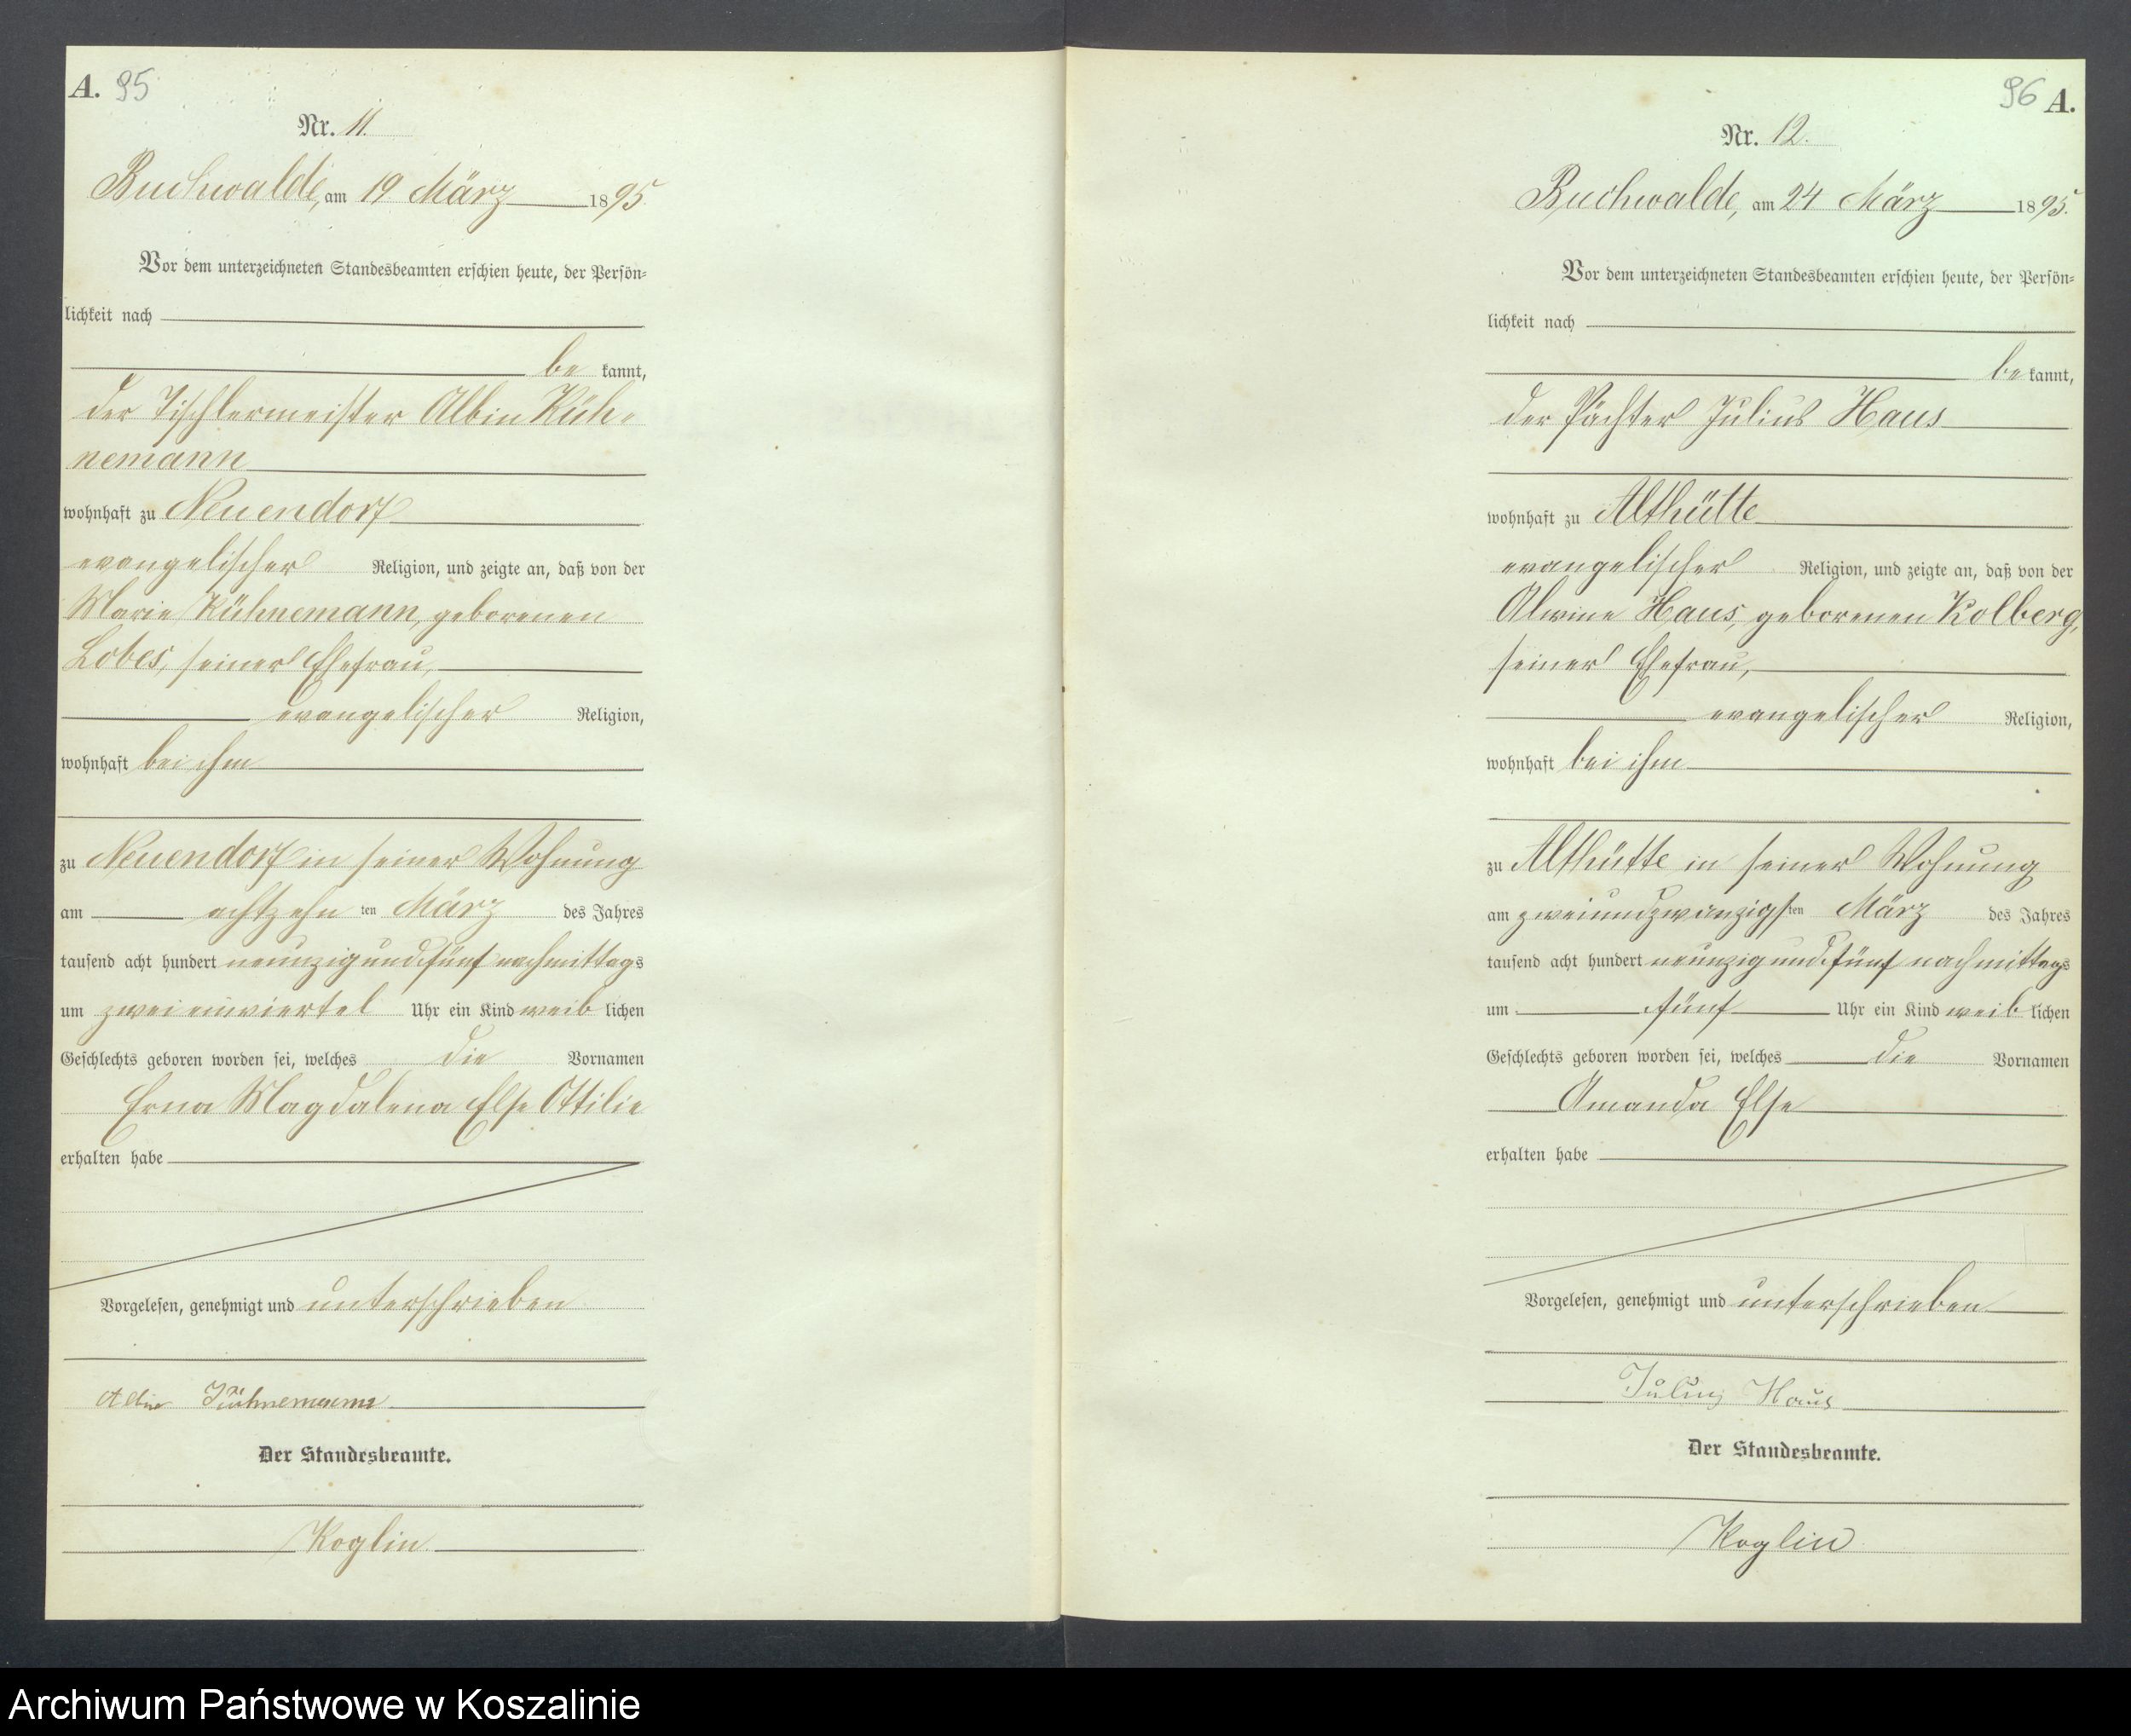 A. 95
Nr. 11.
Buchwalde, am 19 März 1895.
Vor dem unterzeichneten Standesbeamten erschien heute, der Persön-
lichkeit nach
be kannt,
der Tischlermeister Albin Küh-
nemann
wohnhaft zu Neuendorf
evangelischer Religion, und zeigte an, daß von der
Marie Kühnemann, geborenen
Lobes, seiner Ehefrau,
evangelischer Religion,
wohnhaft bei ihm
zu Neuendorf in seiner Wohnung
am achtzehn ten März des Jahres
tausend acht hundert neunzig und fünf nachmittags
um zwei einviertel Uhr ein Kind weib lichen
Geschlechts geboren worden sei, welches die Vornamen
Erna Magdalena Else Ottilie
erhalten habe
Vorgelesen, genehmigt und unterschrieben
Albin Kühnemann
Der Standesbeamte.
Koglin
96 A.
Nr. 12.
Buchwalde, am 24 März 1895.
Vor dem unterzeichneten Standesbeamten erschien heute, der Persön-
lichkeit nach
be kannt,
der Pächter Julius Haus
wohnhaft zu Althütte
evangelischer Religion, und zeigte an, daß von der
Alwine Haus, geborenen Kolberg,
seiner Ehefrau,
evangelischer Religion,
wohnhaft bei ihm
zu Althütte in seiner Wohnung
am zweiundzwanzigsten März des Jahres
tausend acht hundert neunzig und fünf nachmittags
um fünf Uhr ein Kind weib lichen
Geschlechts geboren worden sei, welches die Vornamen
Amanda Else
erhalten habe
Vorgelesen, genehmigt und unterschrieben
Julius Haus
Der Standesbeamte.
Koglin
Archiwum Państwowe w Koszalinie